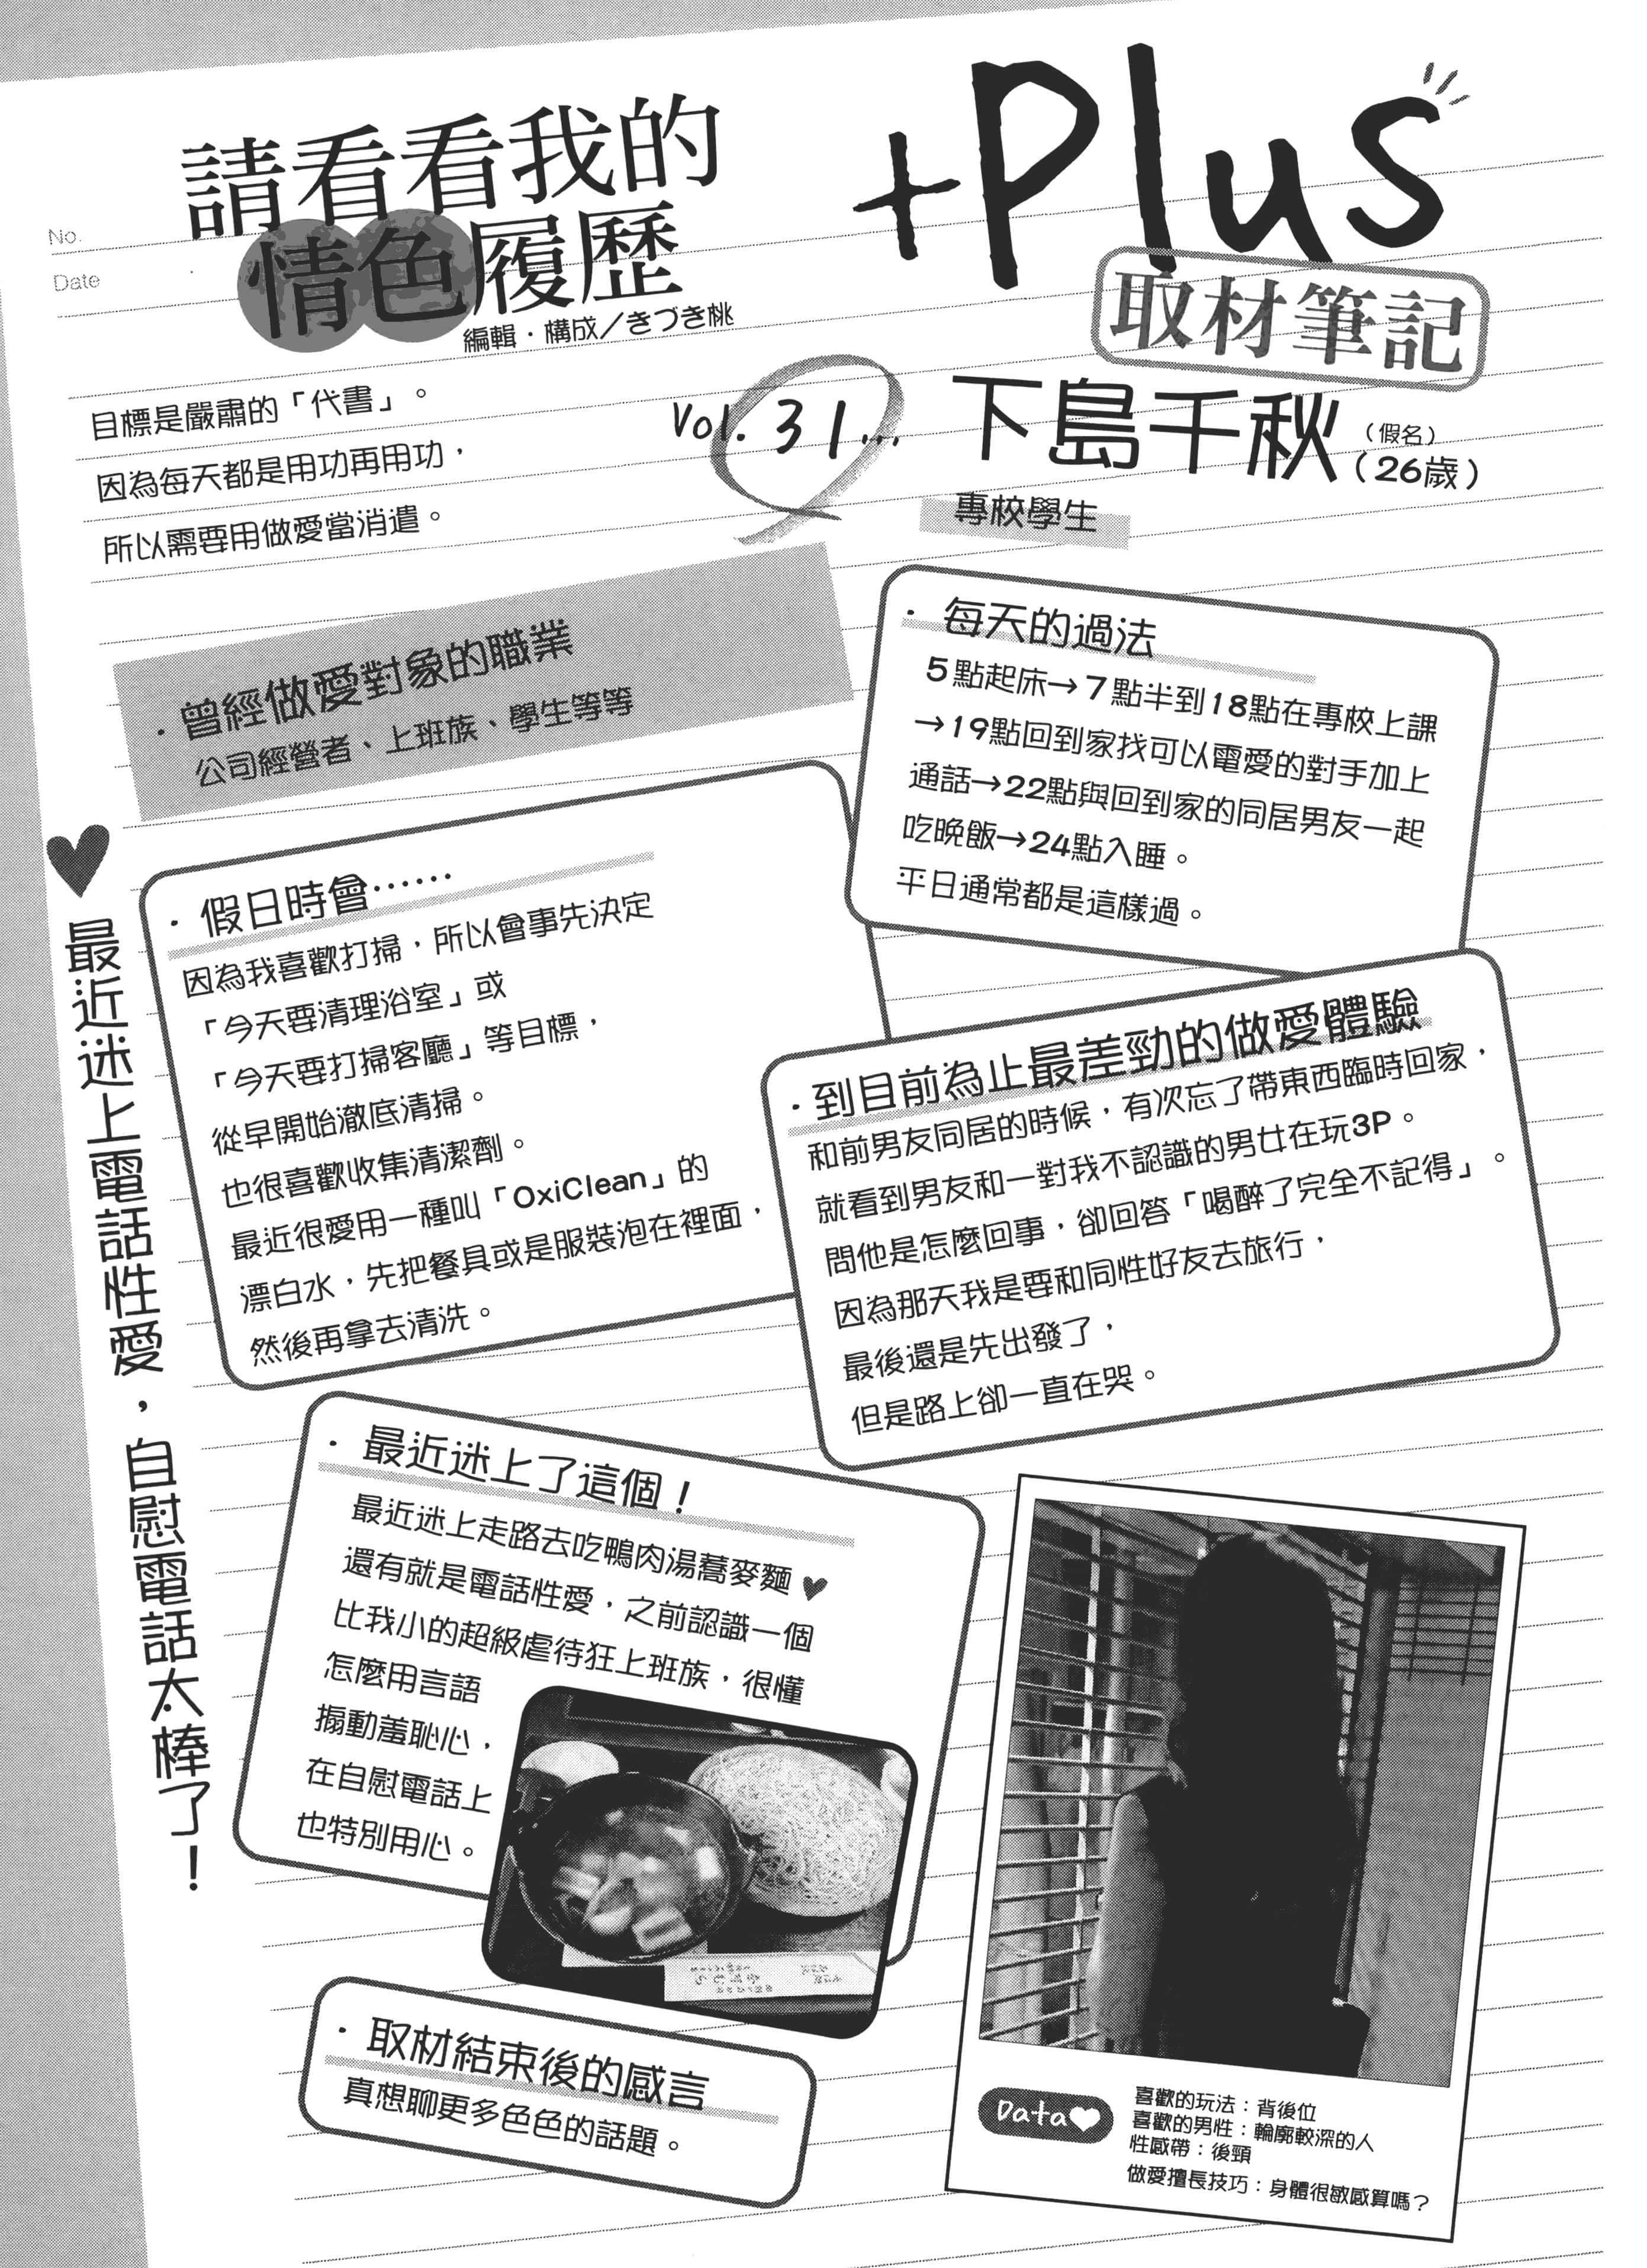 請看看我的
情色履歷
編輯・構成／きづき桃
+Plus
取材筆記
No.
Date
目標是嚴肅的「代書」。
因為每天都是用功再用功，
所以需要用做愛當消遣。
Vol. 31...
下島千秋
（假名）
（26歲）
專校學生
・曾經做愛對象的職業
公司經營者、上班族、學生等等
・每天的過法
5點起床→7點半到18點在專校上課
→19點回到家找可以電愛的對手加上
通話→22點與回到家的同居男友一起
吃晚飯→24點入睡。
平日通常都是這樣過。
・假日時會……
因為我喜歡打掃，所以會事先決定
「今天要清理浴室」或
「今天要打掃客廳」等目標，
從早開始澈底清掃。
也很喜歡收集清潔劑。
最近很愛用一種叫「OxiClean」的
漂白水，先把餐具或是服裝泡在裡面，
然後再拿去清洗。
・到目前為止最差勁的做愛體驗
和前男友同居的時候，有次忘了帶東西臨時回家，
就看到男友和一對我不認識的男女在玩3P。
問他是怎麼回事，卻回答「喝醉了完全不記得」。
因為那天我是要和同性好友去旅行，
最後還是先出發了，
但是路上卻一直在哭。
♥最近迷上電話性愛，自慰電話太棒了！
・最近迷上了這個！
最近迷上走路去吃鴨肉湯蕎麥麵♥
還有就是電話性愛，之前認識一個
比我小的超級虐待狂上班族，很懂
怎麼用言語
搧動羞恥心，
在自慰電話上
也特別用心。
・取材結束後的感言
真想聊更多色色的話題。
Data♥
喜歡的玩法：背後位
喜歡的男性：輪廓較深的人
性感帶：後頸
做愛擅長技巧：身體很敏感算嗎？